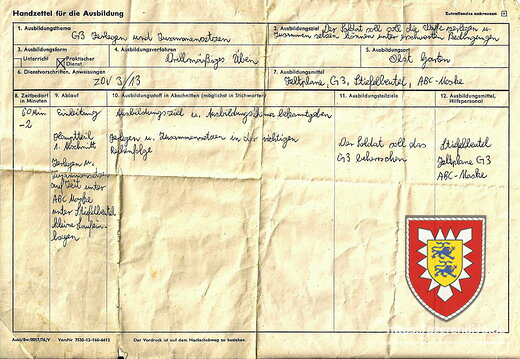 Handzettel für die Ausbildung
Zutreffendes ankreuzen
1. Ausbildungsthema
G3 Zerlegen und Zusammensetzen
2. Ausbildungsziel Der Soldat soll die Waffe zerlegen u.
Zusammen setzen können unter erschwerten Bedingungen
3. Ausbildungsform
Unterricht
Praktischer Dienst
4. Ausbildungsverfahren
Drillmäßiges Üben
5. Ausbildungsort
Obst Garten
6. Dienstvorschriften, Anweisungen
ZDV 3/13
7. Ausbildungsmittel
Zeltplane, G3, Stiefelbeutel, ABC-Maske
8. Zeitbedarf in Minuten
9. Ablauf
10. Ausbildungsstoff in Abschnitten (möglichst in Stichworten)
11. Ausbildungsteilziele
12. Ausbildungsmittel, Hilfspersonal
60 Min
Einleitung
Ausbildungsziel u. Ausbildungsthema bekanntgeben
-2
Hauptteil
1. Abschnitt
Zerlegen u. Zusammensetzen in der richtigen
Reihenfolge
Der Soldat soll das
G3 beherrschen
Stiefelbeutel
Zeltplane G3
ABC-Maske
Zerlegen u.
Zusammensetzen
auf Zeit unter
ABC Maske
unter Stiefelbeutel
kleine
lagen
Ausb/Bw/0057/76/V VersNr 7530-12-166-6612
Der Vordruck ist auf dem Nachschubweg zu beziehen.